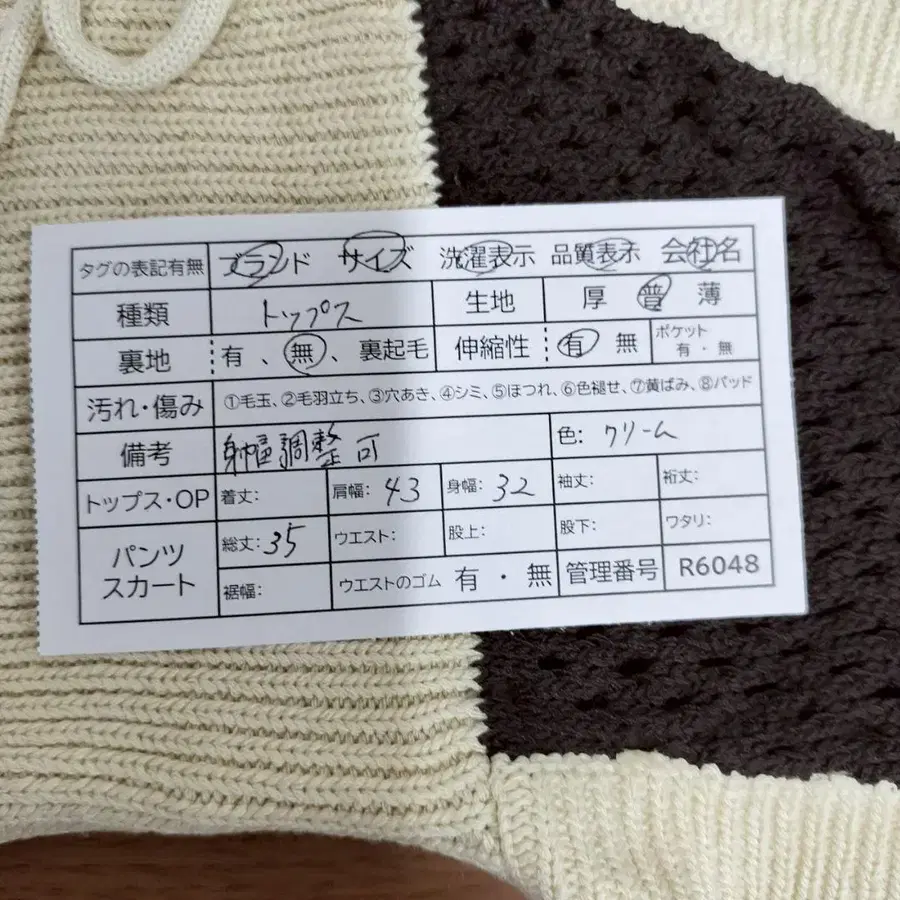 タグの表記有無 ブランド サイズ 洗濯表示 品質表示 会社名
種類 トップス 生地 厚 普 薄
裏地 有 、 無 、 裏起毛 伸縮性 有 無 ポケット 有 ・ 無
汚れ・傷み ①毛玉、②毛羽立ち、③穴あき、④シミ、⑤ほつれ、⑥色褪せ、⑦黄ばみ、⑧パッド
備考 身幅調整可 色: クリーム
トップス・OP 着丈: 肩幅: 43 身幅: 32 袖丈: 裄丈:
パンツ スカート 総丈: 35 ウエスト: 股上: 股下: ワタリ:
裾幅: ウエストのゴム 有 ・ 無 管理番号 R6048